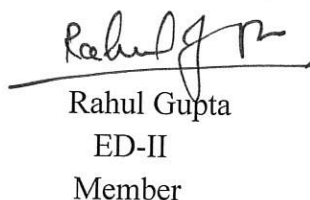 Rahul Gupta
Rahul Gupta
ED-II
Member